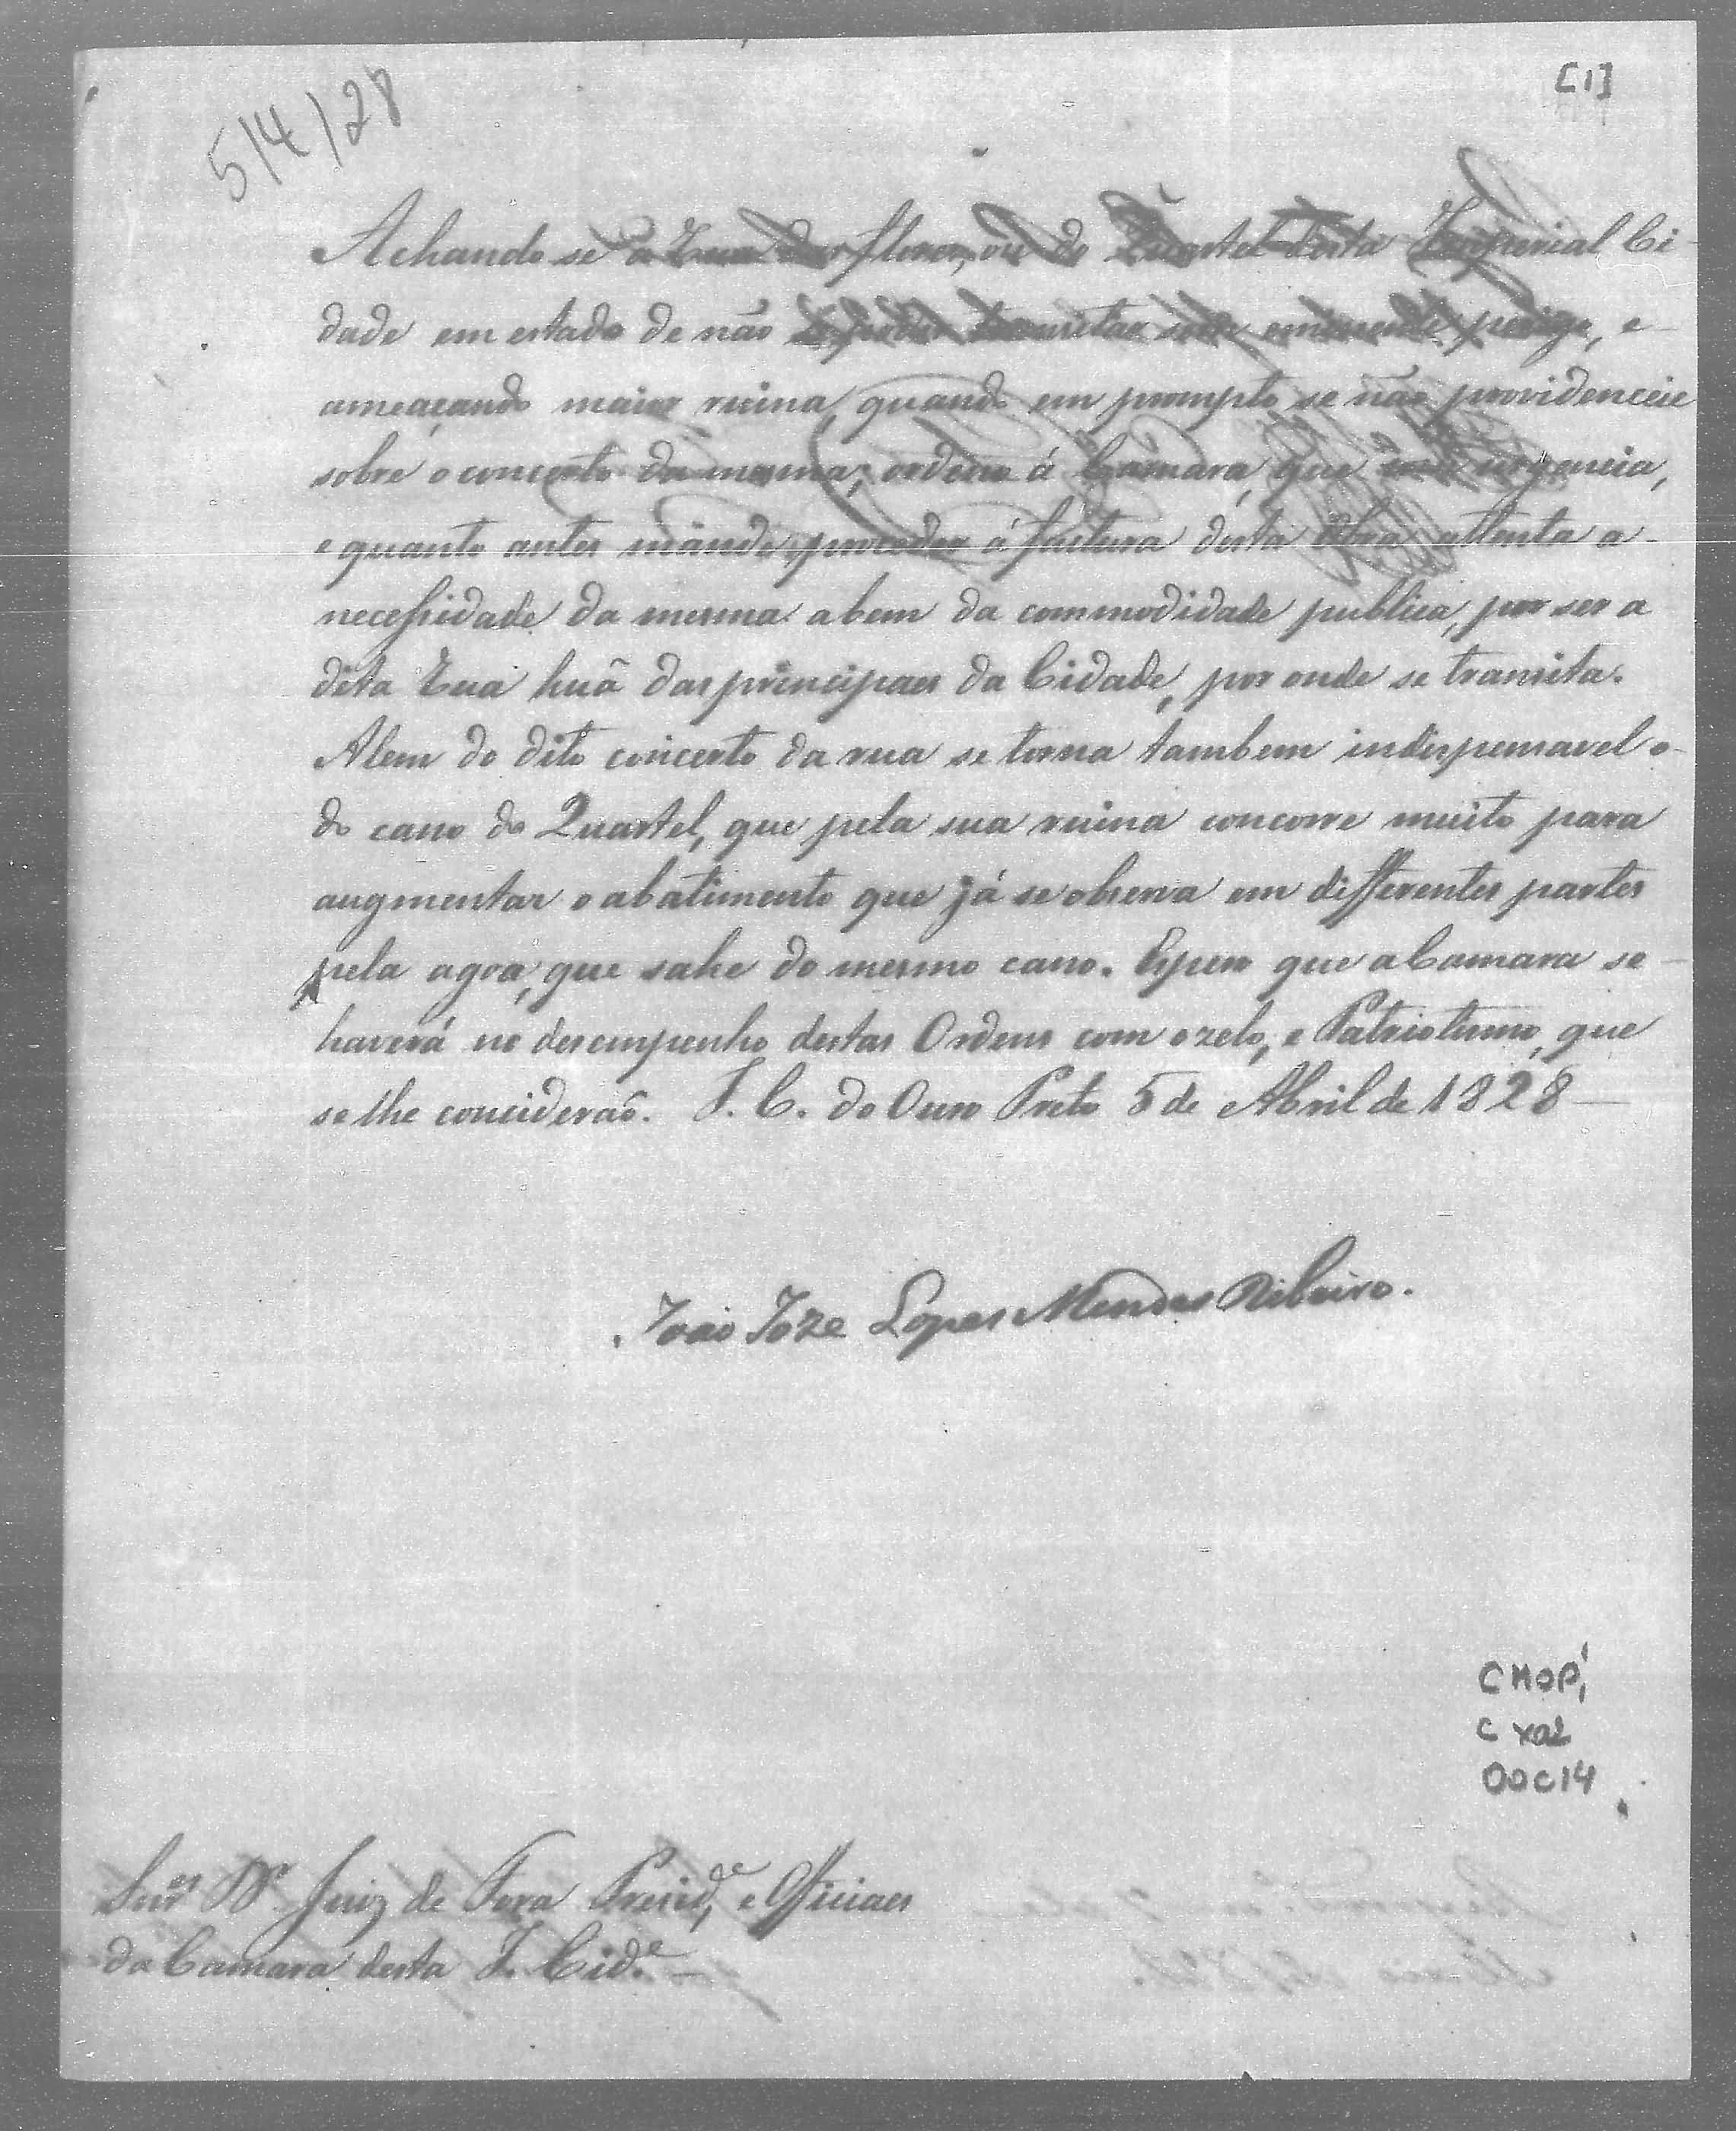 [1]
5/4/28
Achando se a Rua das flores, ou do Quartel desta Imperial Ci-
dade em estado de não se poder tranzitar sem eminente perigo, e
ameaçando maior ruina, quando em prompto se não providenceie
sobre o concerto da mesma; ordeno á Camara, que com urgencia,
e quanto antes mande proceder á factura desta Obra attenta a
necessidade da mesma a bem da commodidade publica, por ser a
dita Rua huã das principaes da Cidade, por onde se transita.
Alem do dito concerto da rua se torna tambem indispensavel o
do cano do Quartel, que pela sua ruina concorre muito para
augmentar o abatimento que já se observa em differentes partes
pela agoa, que sahe do mesmo cano. Espero que a Camara se
haverá no desempenho destas Ordens com o zelo, e Patriotismo, que
se lhe concidera͂o. I. C. do Ouro Preto 5 de Abril de 1828
João Joze Lopes Mendes Ribeiro.
CMOP,
C xa2
DOC14
Snr.es Dr. Juiz de Fora Presid.e, e Officiaes
da Camara desta I. Cid.e